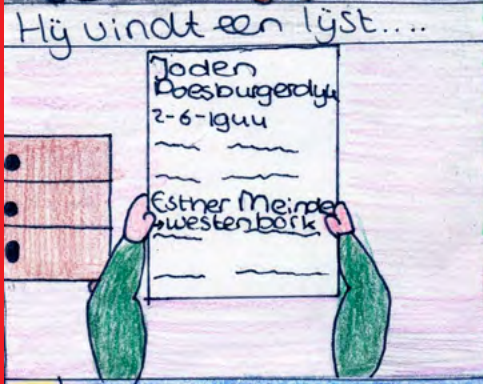 Hij vindt een lijst....
Joden
Doesburgerdijk
2-6-1944
Esther Meinder
→Westenbork